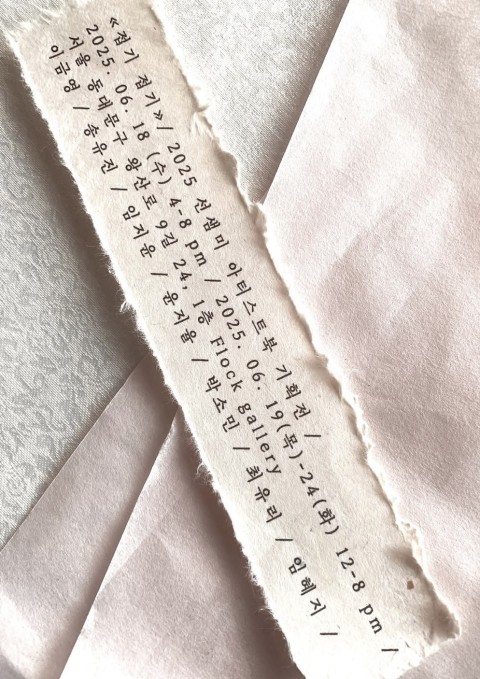 《접기 접기》/ 2025 선샘미 아티스트북 기획전 /
2025. 06. 18 (수) 4-8 pm / 2025. 06. 19(목)-24(화) 12-8 pm /
서울 동대문구 왕산로 9길 24, 1층 Flock gallery
이금영 / 송유진 / 임지윤 / 윤지율 / 박소민 / 최유리 / 임혜지 /